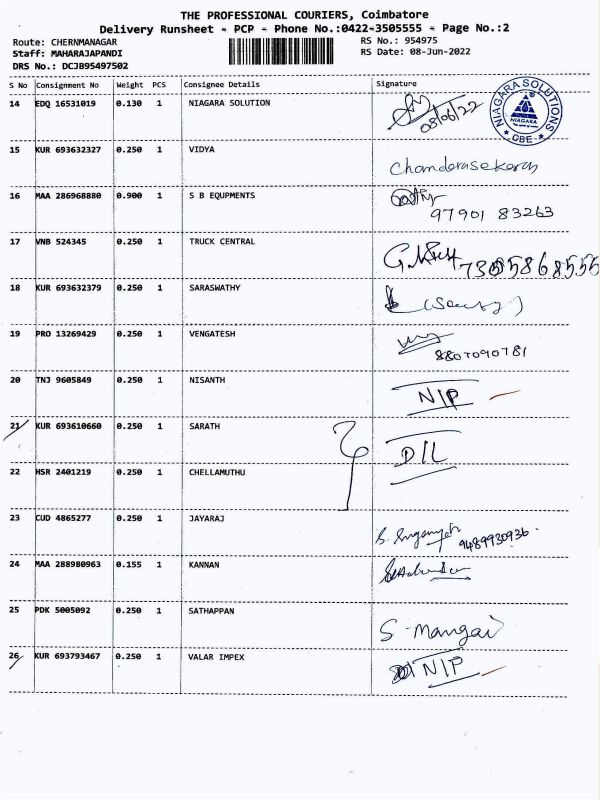 THE PROFESSIONAL COURIERS, Coimbatore
Delivery Runsheet - PCP - Phone No.:0422-3505555 - Page No.:2
Route: CHERNMANAGAR RS No.: 954975
Staff: MAHARAJAPANDI RS Date: 08-Jun-2022
DRS No.: DCJB95497502
S No Consignment No Weight PCS Consignee Details Signature
14 EDQ 16531019 0.130 1 NIAGARA SOLUTION 08/06/22
NIAGARA SOLUTIONS
NIAGARA
CBE
15 KUR 693632327 0.250 1 VIDYA
Chandarasekaran
16 MAA 286968880 0.900 1 S B EQUPMENTS
97901 83263
17 VNB 524345 0.250 1 TRUCK CENTRAL
18 KUR 693632379 0.250 1 SARASWATHY
19 PRO 13269429 0.250 1 VENGATESH
8807090781
20 TNJ 9605849 0.250 1 NISANTH
N/P
21 KUR 693610660 0.250 1 SARATH
D/L
22 HSR 2401219 0.250 1 CHELLAMUTHU
23 CUD 4865277 0.250 1 JAYARAJ
9489930936
24 MAA 288980963 0.155 1 KANNAN
25 PDK 5005092 0.250 1 SATHAPPAN
S. Mangai
26 KUR 693793467 0.250 1 VALAR IMPEX
N/P